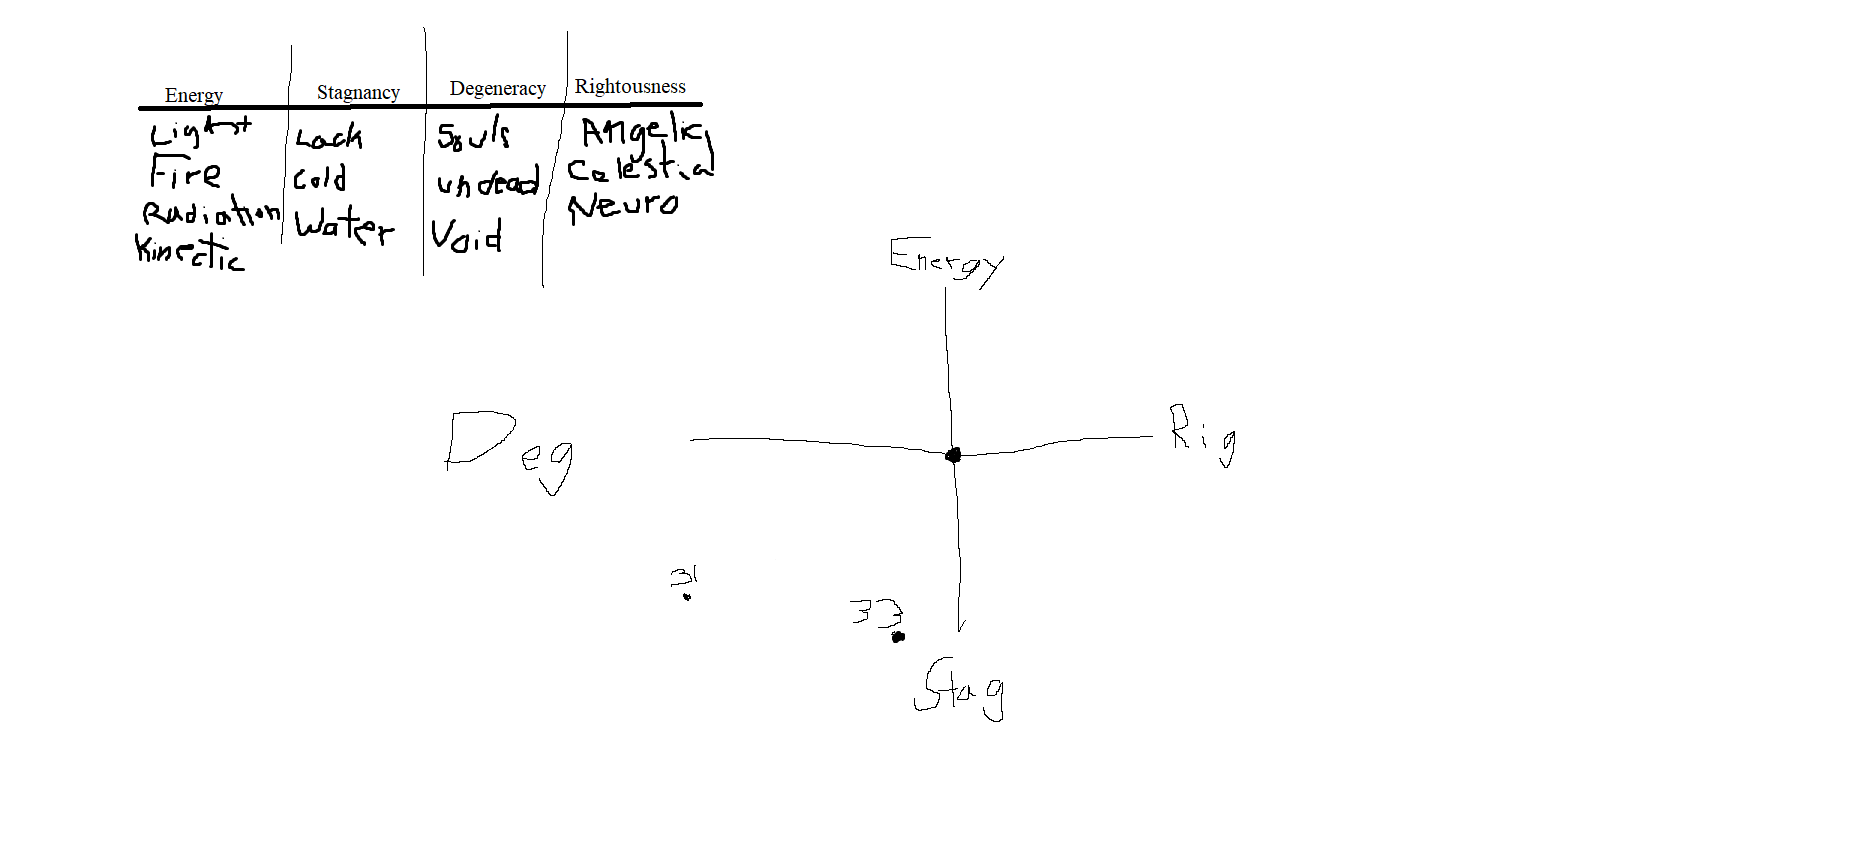 Energy Stagnancy Degeneracy Rightousness
Light Lack Souls Angelic
Fire Cold undead Celestial
Radiation Water Void Neuro
Kinetic
Energy
Deg
Rig
31
33
Stag